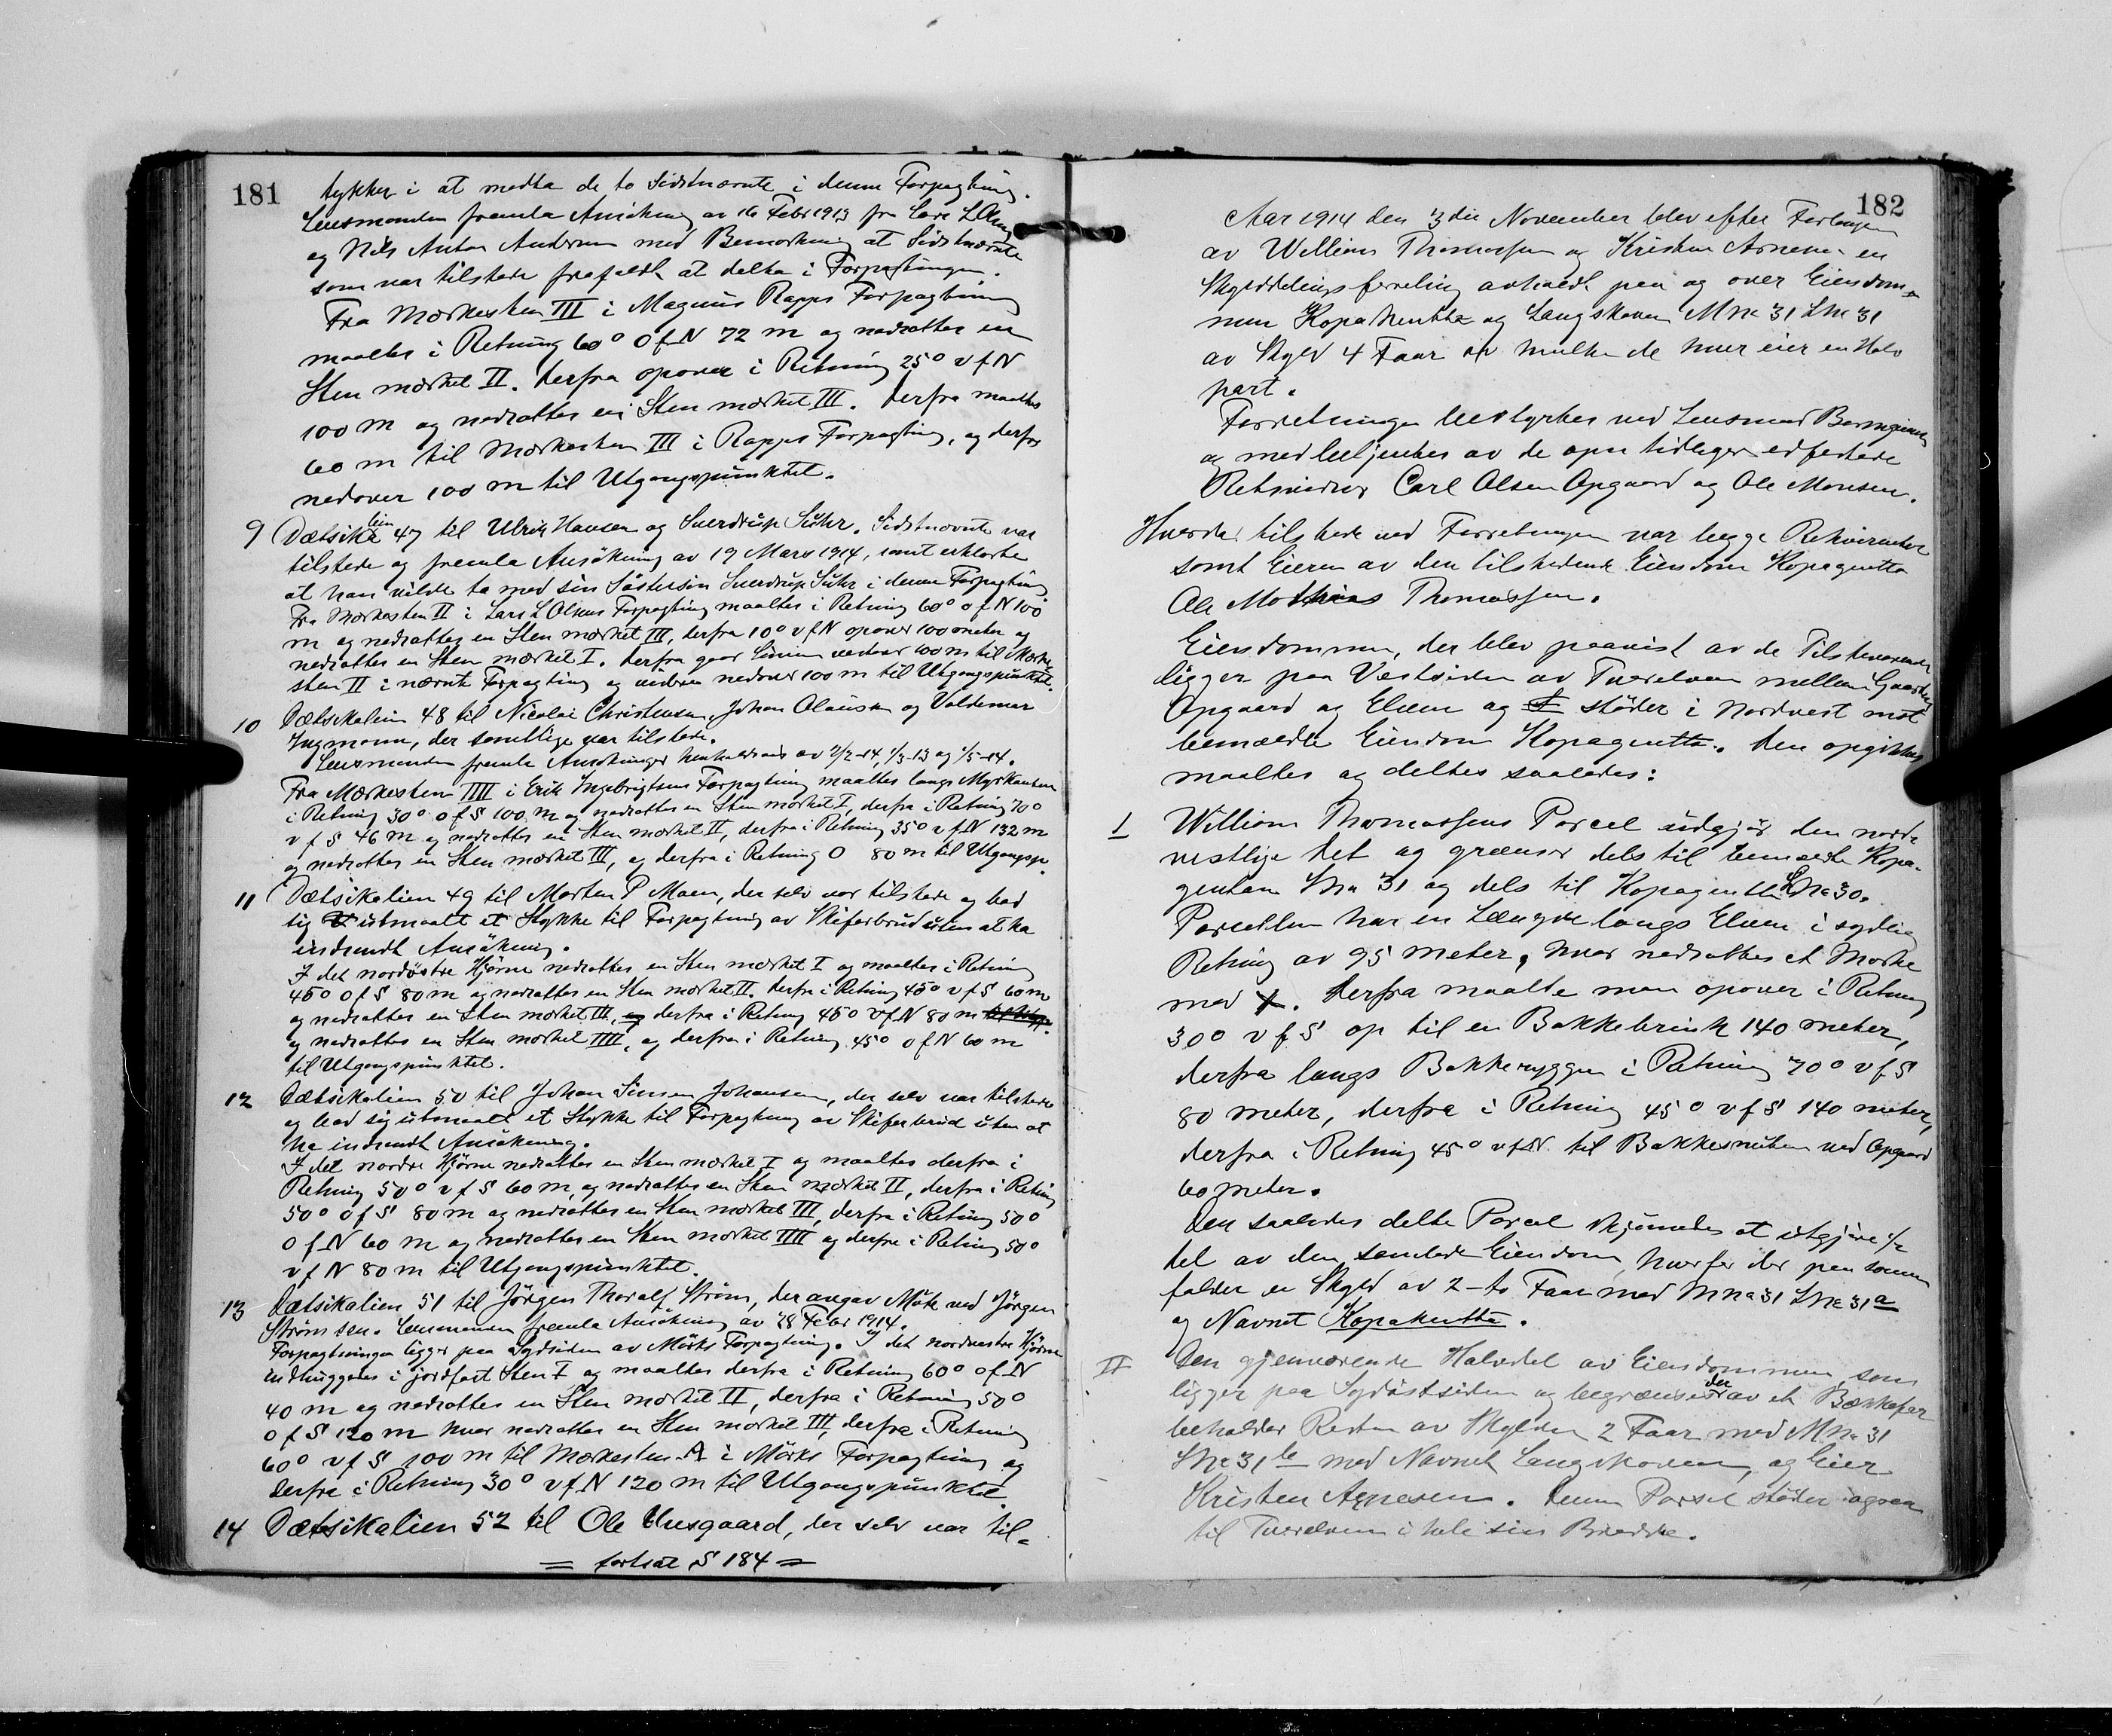 181
tykker i at medta de to Sidstnævnte i denne Forpagtning.
Lensmanden fremla Ansökning av 16 Febr 1913 fra Lars L Olsen
og Nils Anton Andersen med Bemærkning at Sidstnævnte
som var tilstede frafaldt at delta i Forpagtningen.
Fra Mærkesten III i Magnus Rapps Forpagtning
maaltes i Retning 60° O f N 72 m og nedsattes en
Sten mærket II. Derfra opover i Retning 25° v f N
100 m og nedsattes en Sten mærket III. Derfra maaltes
60 m til Mærkesten III i Rapps Forpagtning, og derfra
nedover 100 m til Utgangspunktet.
9 Dætsikalien 47 til Ulrik Hansen og Sverdrup Suhr. Sidstnævnte var
tilstede og fremla Ansökning av 19 Mars 1914, samt erklærte
at han vilde ta med sin Søstersøn Sverdrup Suhr i denne Forpagtning.
Fra Mærkesten II i Lars L Olsens Forpagtning maaltes i Retning 60° o f N 100
m og nedsattes en Sten mærket III, derfra 10° v f N opover 100 meter og
nedsattes en Sten mærket I. Derfra gaar Linien vestover 100 m til Mærke-
sten II i nævnte Forpagtning og videre nedover 100 m til Utgangspunktet.
10 Dætsikalien 48 til Nicolai Christensen, Johan Olausen og Valdemar
Ingmann, der samtlige var tilstede.
Lensmanden fremla Ansökninger henholdsvis av 2/2-14, 1/3-13 og 1/5-14.
Fra Mærkesten IIII i Erik Ingebrigtsens Forpagtning maaltes langs Myrkanten
i Retning 30° o f S 100 m og nedsattes en Sten mærket I, derfra i Retning 70°
v f S 46 m og nedsattes en Sten mærket II, derfra i Retning 35° v f N 132 m
og nedsattes en Sten mærket III, og derfra i Retning O 80 m til Utgangsp.
11 Dætsikalien 49 til Morten P Moen, der selv var tilstede og bad
sig utmaalt et Stykke til Forpagtning av Skiferbrud uten at ha
indsendt Ansökning.
I det nordöstre Hjørne nedsattes en Sten mærket I og maaltes i Retning
45° O f S 80 m og nedsattes en Sten mærket II. Derfra i Retning 45° v f S 60 m
og nedsattes en Sten mærket III, og derfra i Retning 45° v f N 80 m
og nedsattes en Sten mærket IIII, og derfra i Retning 45° o f N 60 m
til Utgangspunktet.
12 Dætsikalien 50 til Johan Simon Johansen, der selv var tilstede
og bad sig utmaalt et Stykke til Forpagtning av Skiferbrud uten at
ha indsendt Ansökning.
I det nordre Hjørne nedsattes en Sten mærket I og maaltes derfra i
Retning 50° v f S 60 m og nedsattes en Sten mærket II, derfra i Retning
50° o f S 80 m og nedsattes en Sten mærket III, derfra i Retning 50°
O f N 60 m og nedsattes en Sten mærket IIII og derfra i Retning 50°
v f N 80 m til Utgangspunktet.
13 Dætsikalien 51 til Jörgen Thoralf Ström, der angav Möte ved Jörgen
Ström sen. Lensmanden fremla Ansökning av 28 Febr 1914.
Forpagtningen ligger paa Sydsiden av Mörks Forpagtning. I det nordvestre Hjørne
indhuggedes i jordfast Sten I og maaltes derfra i Retning 60° o f N
40 m og nedsattes en Sten mærket II, derfra i Retning 50°
O f S 120 m hvor nedsattes en Sten mærket III, derfra i Retning
60° v f S 100 m til Mærkesten A i Mörks Forpagtning og
derfra i Retning 30° v f N 120 m til Utgangspunktet.
14 Dætsikalien 52 til Ole Uresgaard, der selv var til-
= fortsat S 184 =
182
Aar 1914 den 3die November blev efter Forlangen
av William Thomassen og Kristen Arnesen en
Skylddelingsforretning avholdt paa og over Eiendom-
men Kopakutta og Langskoven Mne 31 Lne 31
av Skyld 4 Faar av hvilke de hver eier en Halv
part.
Forretningen bestyrkes ved Lensmand
og medbetjentes av de opn tidligere edfestede
Retsvidner Carl Olsen Opgaard og Ole Monsen.
Hverder tilstede ved Forretningen var begge Rekvirenter
samt Eieren av den tilstødende Eiendom Kopagutta
Ole Mathias Thomassen.
Eiendommen, der blev paavist av de Tilstedeværende
ligger paa Vestsiden av Tverelven mellem Gaarden
Opgaard og Elven og støder i Nordvest mot
bemældte Eiendom Kopagutta. Den opgikkes
maaltes og deltes saaledes:
I William Thomassens Parcel udgjør den nord-
vestlige Del og grænser dels til bemældte Kopa-
guttam Lne 31 og dels til Kopagutta Lne 30.
Parcellen har en Længde langs Elven i sydlig
Retning av 95 meter, hvor nedsattes et Mærke
med X. Derfra maalte man opover i Retning
30° v f S op til en Bakkebrink 140 meter,
derfra langs Bakkeryggen i Retning 70° v f S
80 meter, derfra i Retning 45° v f S 140 meter,
derfra i Retning 45° v f N til Bakkesnuten ved Opgaard
60 meter.
Den saaledes delte Parcel skjønnedes at utgjøre 1/2
del av den samlede Eiendom, hvorfor der paa samme
falder en Skyld av 2 - to Faar med Mne 31 Lne 31a
og Navnet Kopakutta.
II Den gjenværende Halvdel av Eiendommen, som
ligger paa Sydöstsiden og begrænses der av et Bækkefar
beholder Resten av Skylden 2 Faar med Mne 31
Lne 31b med Navnet Langskoven, og Eier
Kristen Arnesen. Denne Parsel støder ogsaa
til Tverelven i hele sin Bredde.